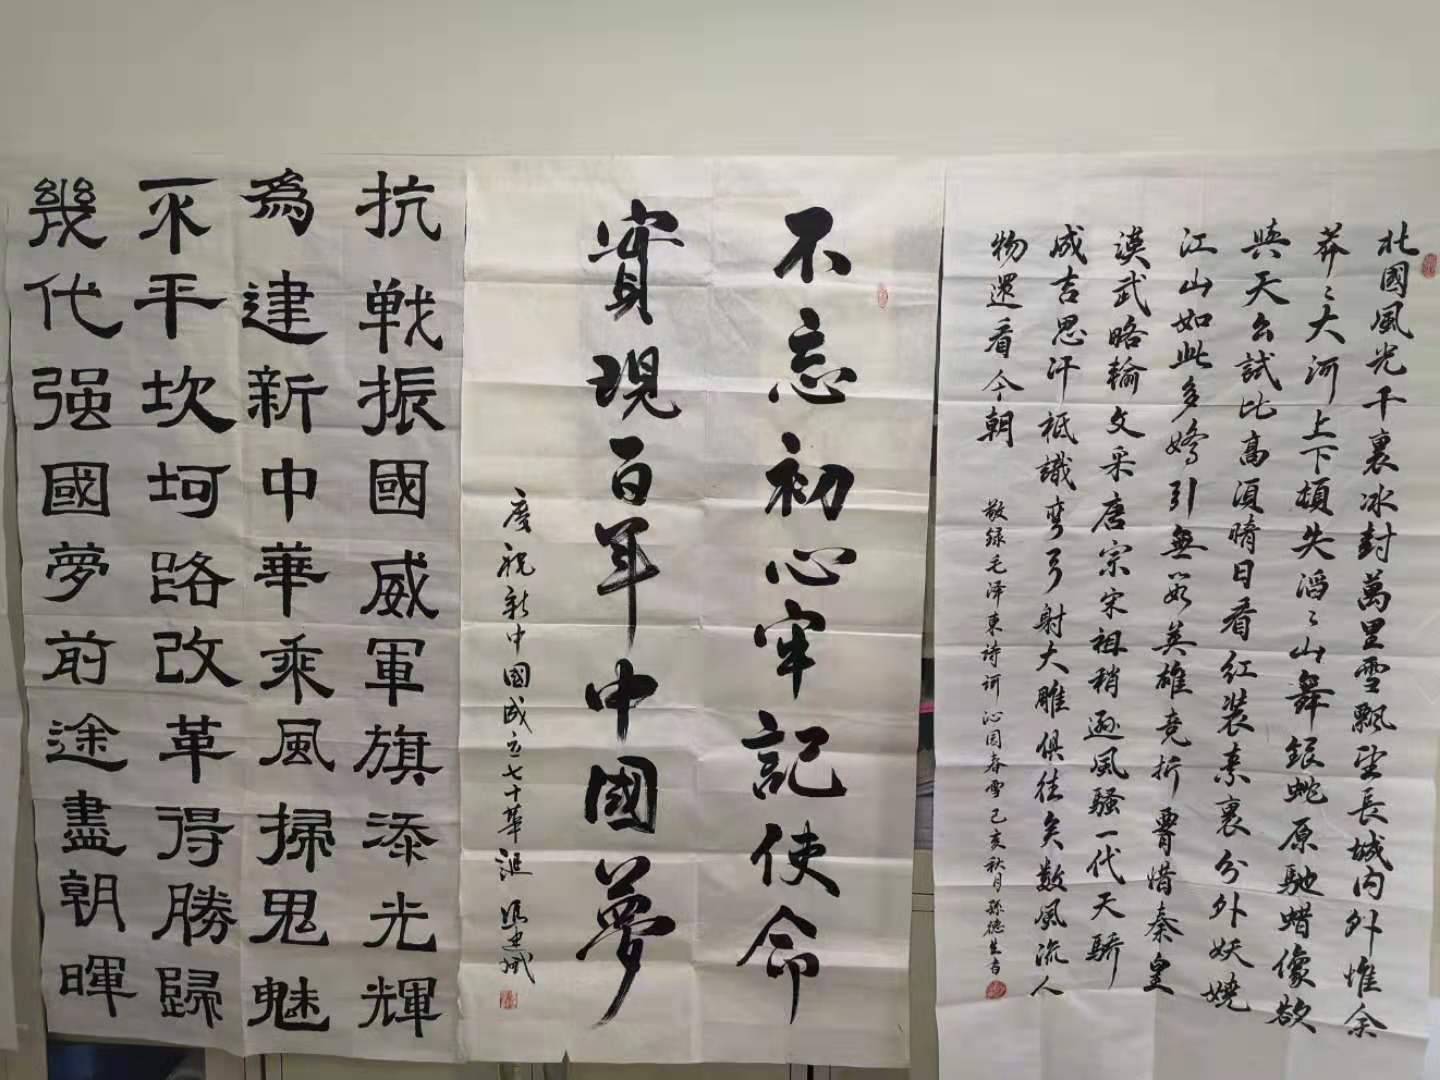 北國風光千裏冰封萬里雪飄望長城内外惟余
莽々大河上下頓失滔々山舞銀蛇原馳蜡像欲
與天公試比高須晴日看红裝素裹分外妖嬈
江山如此多嬌引無數英雄竞折腰惜秦皇
漢武略輸文采唐宗宋祖稍逊風騷一代天驕
成吉思汗祗識彎弓射大雕俱往矣數風流人
物還看今朝
敬録毛泽東詩词沁园春雪己亥秋月孫德生書
不忘初心牢記使命
實現百年中國夢
慶祝新中國成立七十華誕
抗戰振國威軍旗添光輝
為建新中華乘風掃鬼魅
不平坎坷路改革得勝歸
幾代强國夢前途盡朝暉